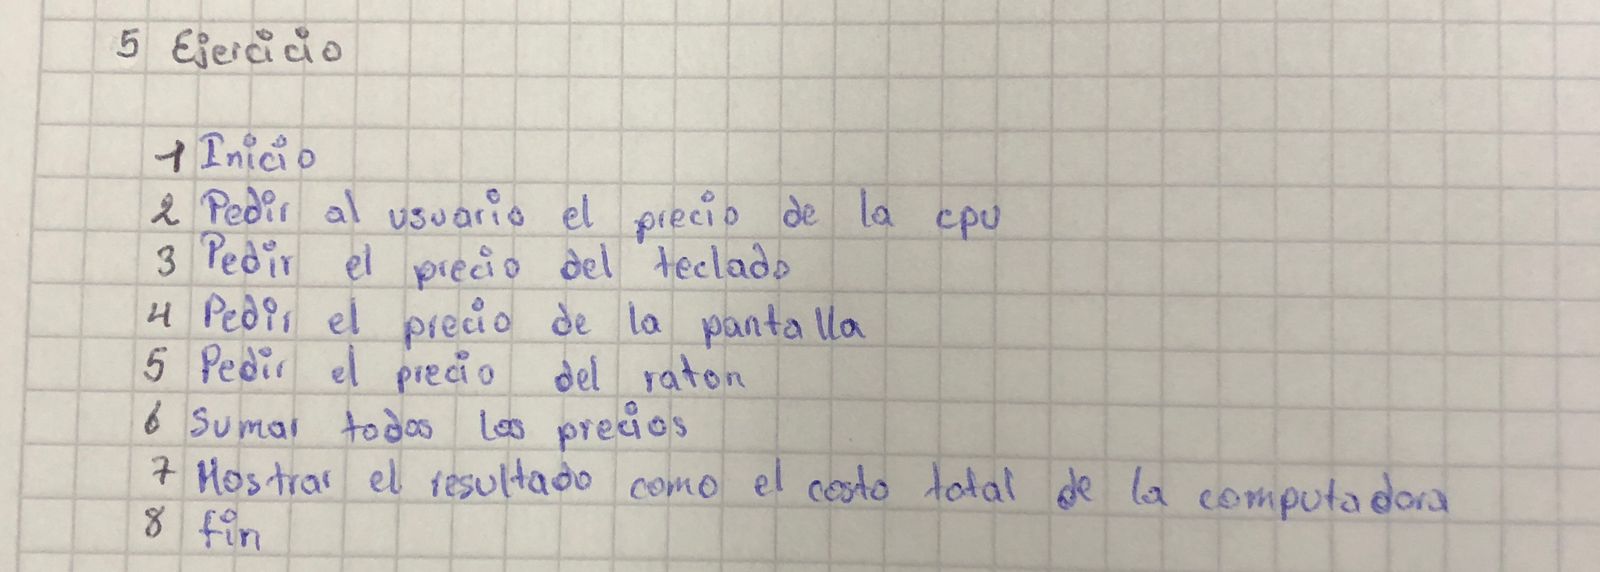 5 Ejercicio
1 Inicio
2 Pedir al usuario el precio de la cpu
3 Pedir el precio del teclado
4 Pedir el precio de la pantalla
5 Pedir el precio del raton
6 Sumar todos los precios
7 Mostrar el resultado como el costo total de la computadora
8 fin